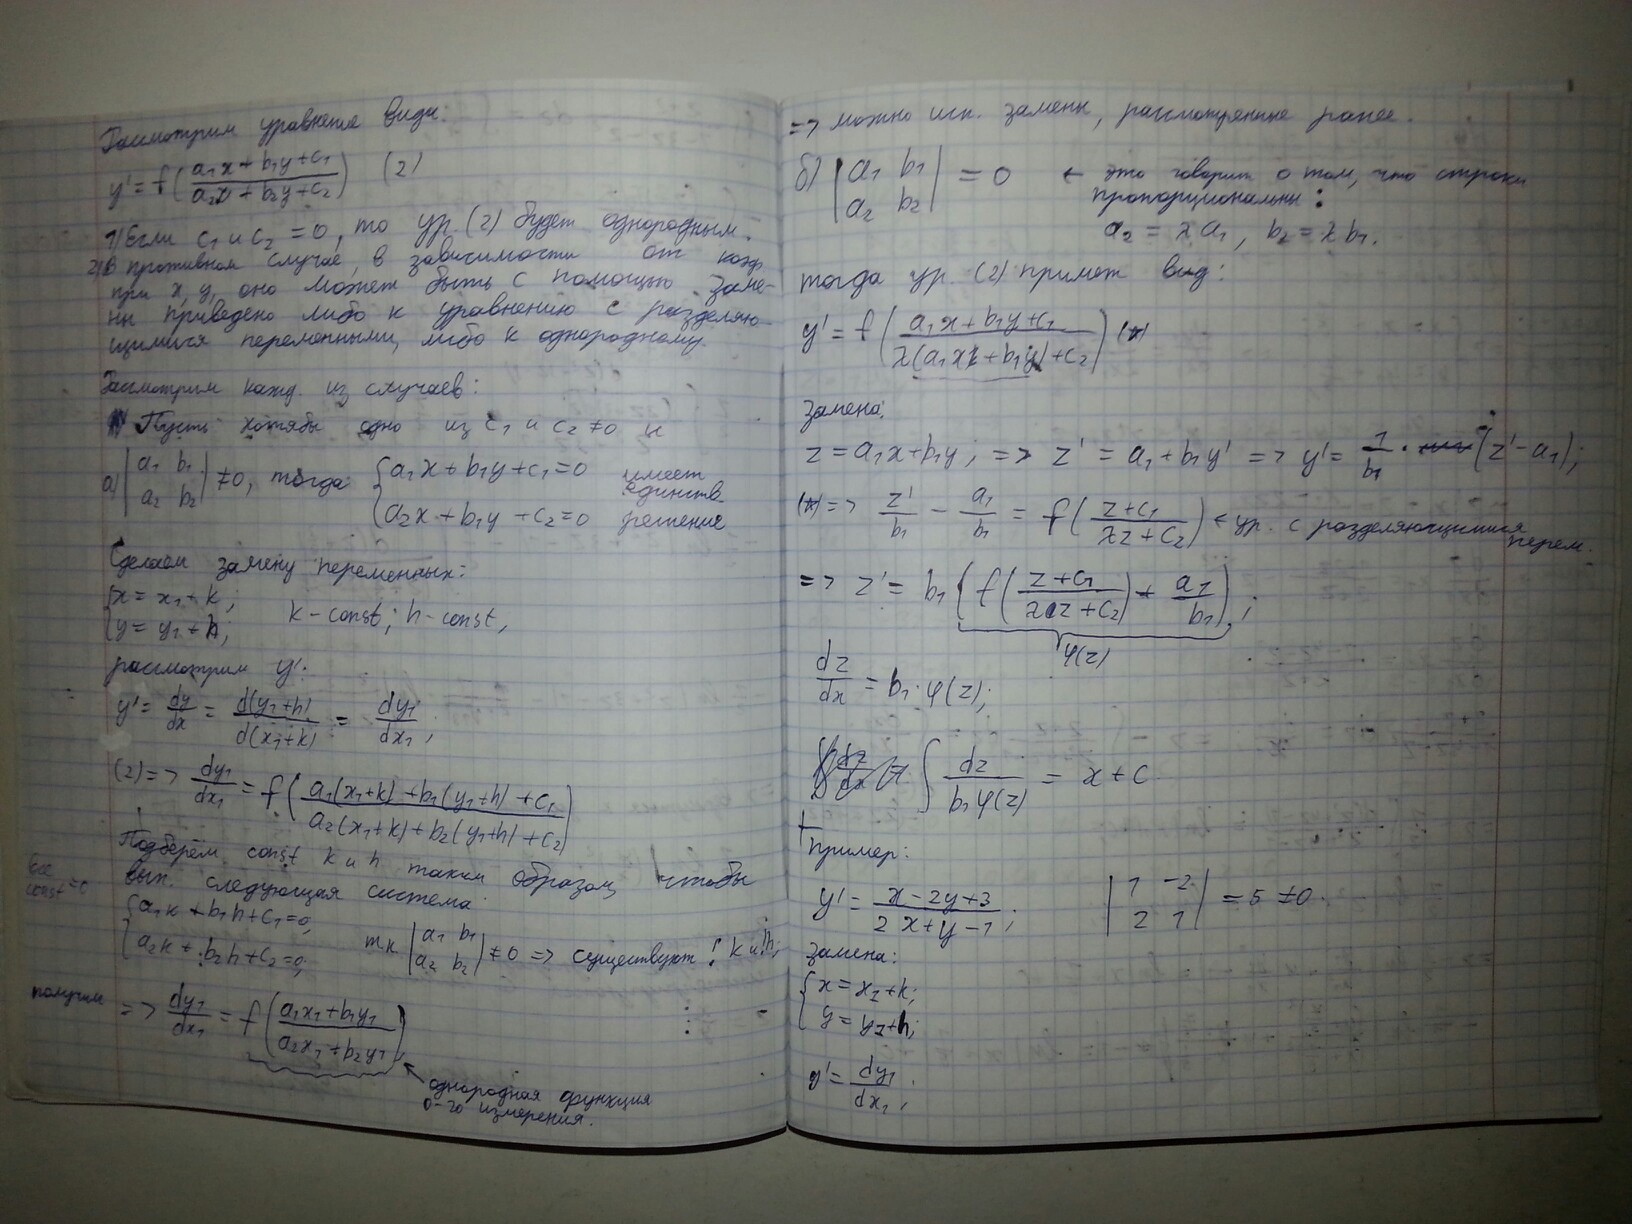 Рассмотрим уравнение вида:
y' = f( (a₁x + b₁y + c₁) / (a₂x + b₂y + c₂) ) (2)
1) Если c₁ и c₂ = 0, то ур. (2) будет однородным.
2) В противном случае, в зависимости от коэф.
при x, y, оно может быть с помощью заме-
ны приведено либо к уравнению с разделяю-
щимися переменными, либо к однородному
Рассмотрим кажд. из случаев:
Пусть хотябы одно из c₁ и c₂ ≠ 0 и
а) |a₁ b₁; a₂ b₂| ≠ 0, тогда: { a₁x + b₁y + c₁ = 0 имеет единств.
a₂x + b₁y + c₂ = 0 решение
Сделаем замену переменных:
{ x = x₁ + k;
y = y₁ + h; k - const; h - const,
рассмотрим y':
y' = dy/dx = d(y₁+h)/d(x₁+k) = dy₁/dx₁;
(2) => dy₁/dx₁ = f( (a₁(x₁+k) + b₁(y₁+h) + c₁) / (a₂(x₁+k) + b₂(y₁+h) + c₂) )
Подберём const k и h таким образом, чтобы
все const = 0
вып. следующая система:
{ a₁k + b₁h + c₁ = 0,
a₂k + b₂h + c₂ = 0, т.к. |a₁ b₁; a₂ b₂| ≠ 0 => существуют ! k и h;
получим => dy₁/dx₁ = f( (a₁x₁ + b₁y₁) / (a₂x₁ + b₂y₁) )
однородная функция
0-го измерения.
=> можно исп. замены, рассмотренные ранее.
б) |a₁ b₁; a₂ b₂| = 0 ← это говорит о том, что строки
пропорциональны:
a₂ = λa₁, b₂ = λb₁.
тогда ур. (2) примет вид:
y' = f( (a₁x + b₁y + c₁) / (λ(a₁x + b₁y) + c₂) ) (*)
замена:
z = a₁x + b₁y; => z' = a₁ + b₁y' => y' = 1/b₁ · (z' - a₁);
(*) => z'/b₁ - a₁/b₁ = f( (z + c₁) / (λz + c₂) ) ← ур. с разделяющимися
перем.
=> z' = b₁( f( (z + c₁) / (λz + c₂) ) + a₁/b₁ );
φ(z)
dz/dx = b₁·φ(z);
∫ dz / (b₁φ(z)) = x + C
Пример:
y' = (x - 2y + 3) / (2x + y - 1); |1 -2; 2 1| = 5 ≠ 0.
замена:
{ x = x₁ + k;
y = y₁ + h;
y' = dy₁/dx₁;